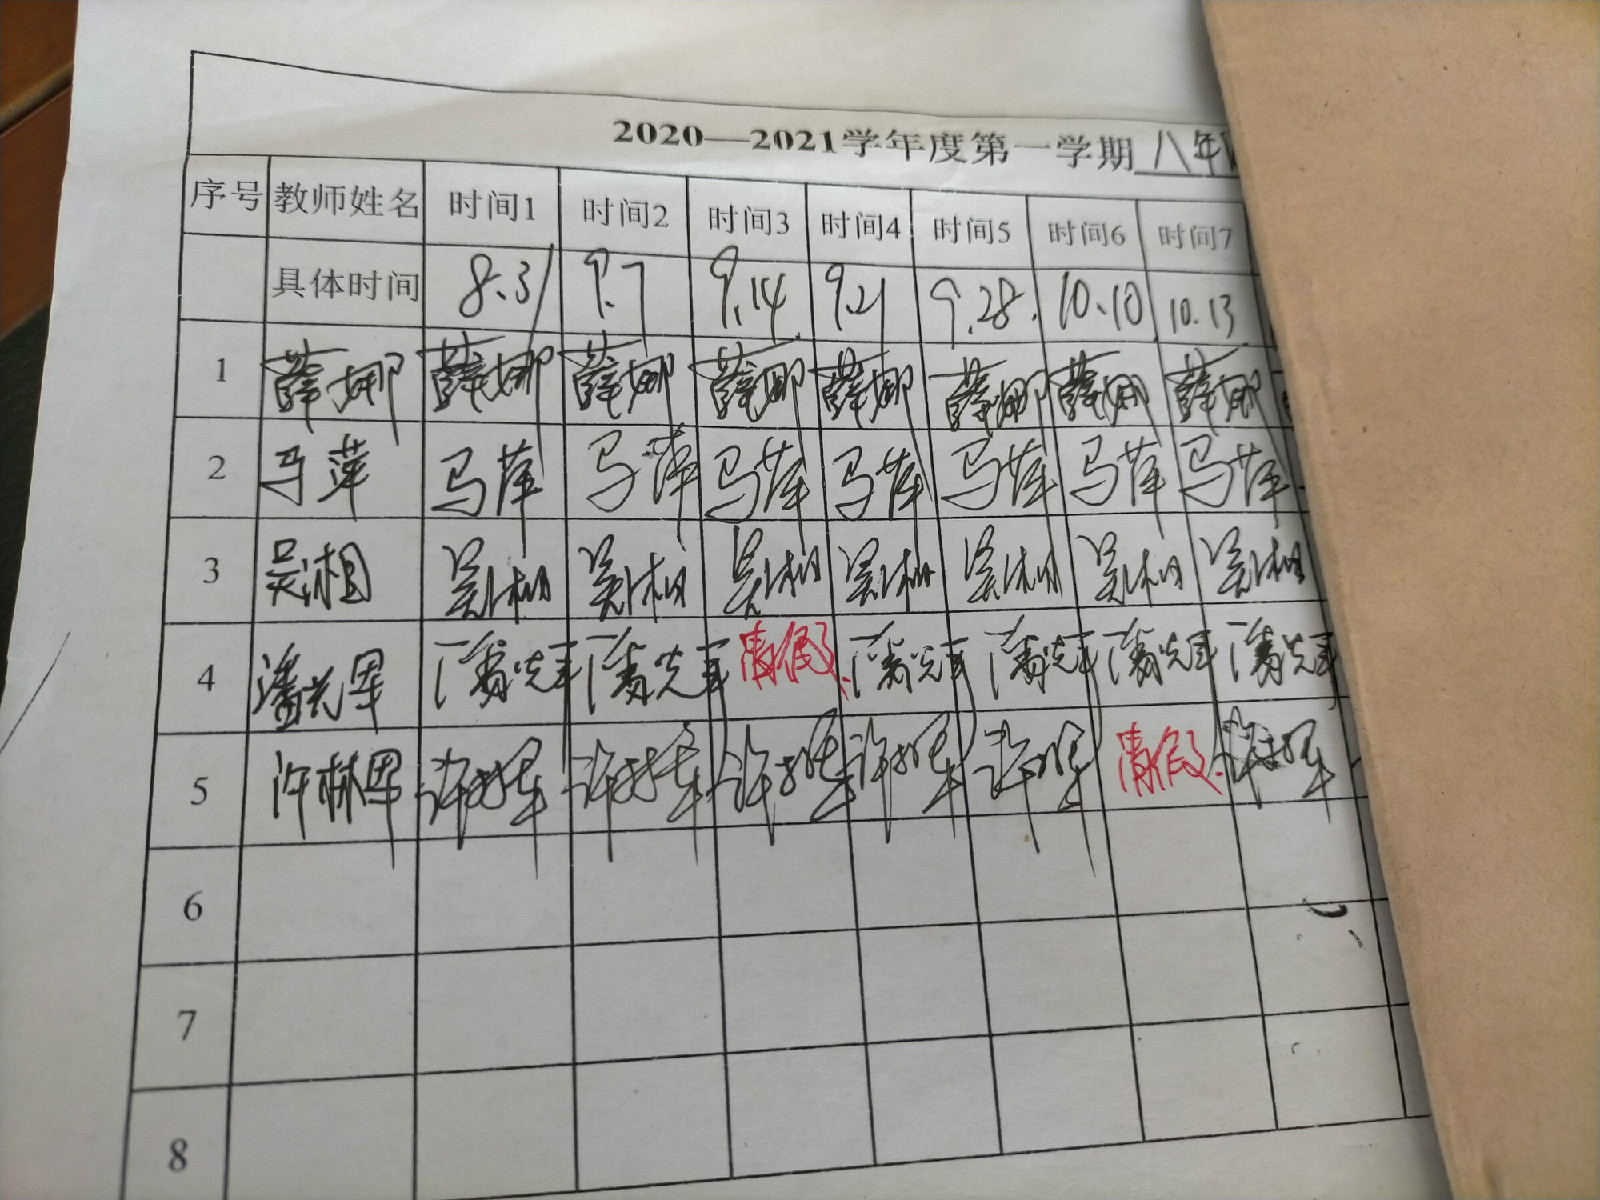 2020—2021学年度第一学期八年
序号 教师姓名 时间1 时间2 时间3 时间4 时间5 时间6 时间7
具体时间 8.31 9.7 9.14 9.21 9.28. 10.10 10.13
1 薛娜 薛娜 薛娜 薛娜 薛娜 薛娜 薛娜 薛娜
2 马萍 马萍 马萍 马萍 马萍 马萍 马萍 马萍
3 吴湘 吴湘 吴湘 吴湘 吴湘 吴湘 吴湘 吴湘
4 潘光军 潘光军 潘光军 请假. 潘光军 潘光军 潘光军 潘光军
5 许林军 许林军 许林军 许林军 许林军 许林军 请假. 许林军
6
7
8